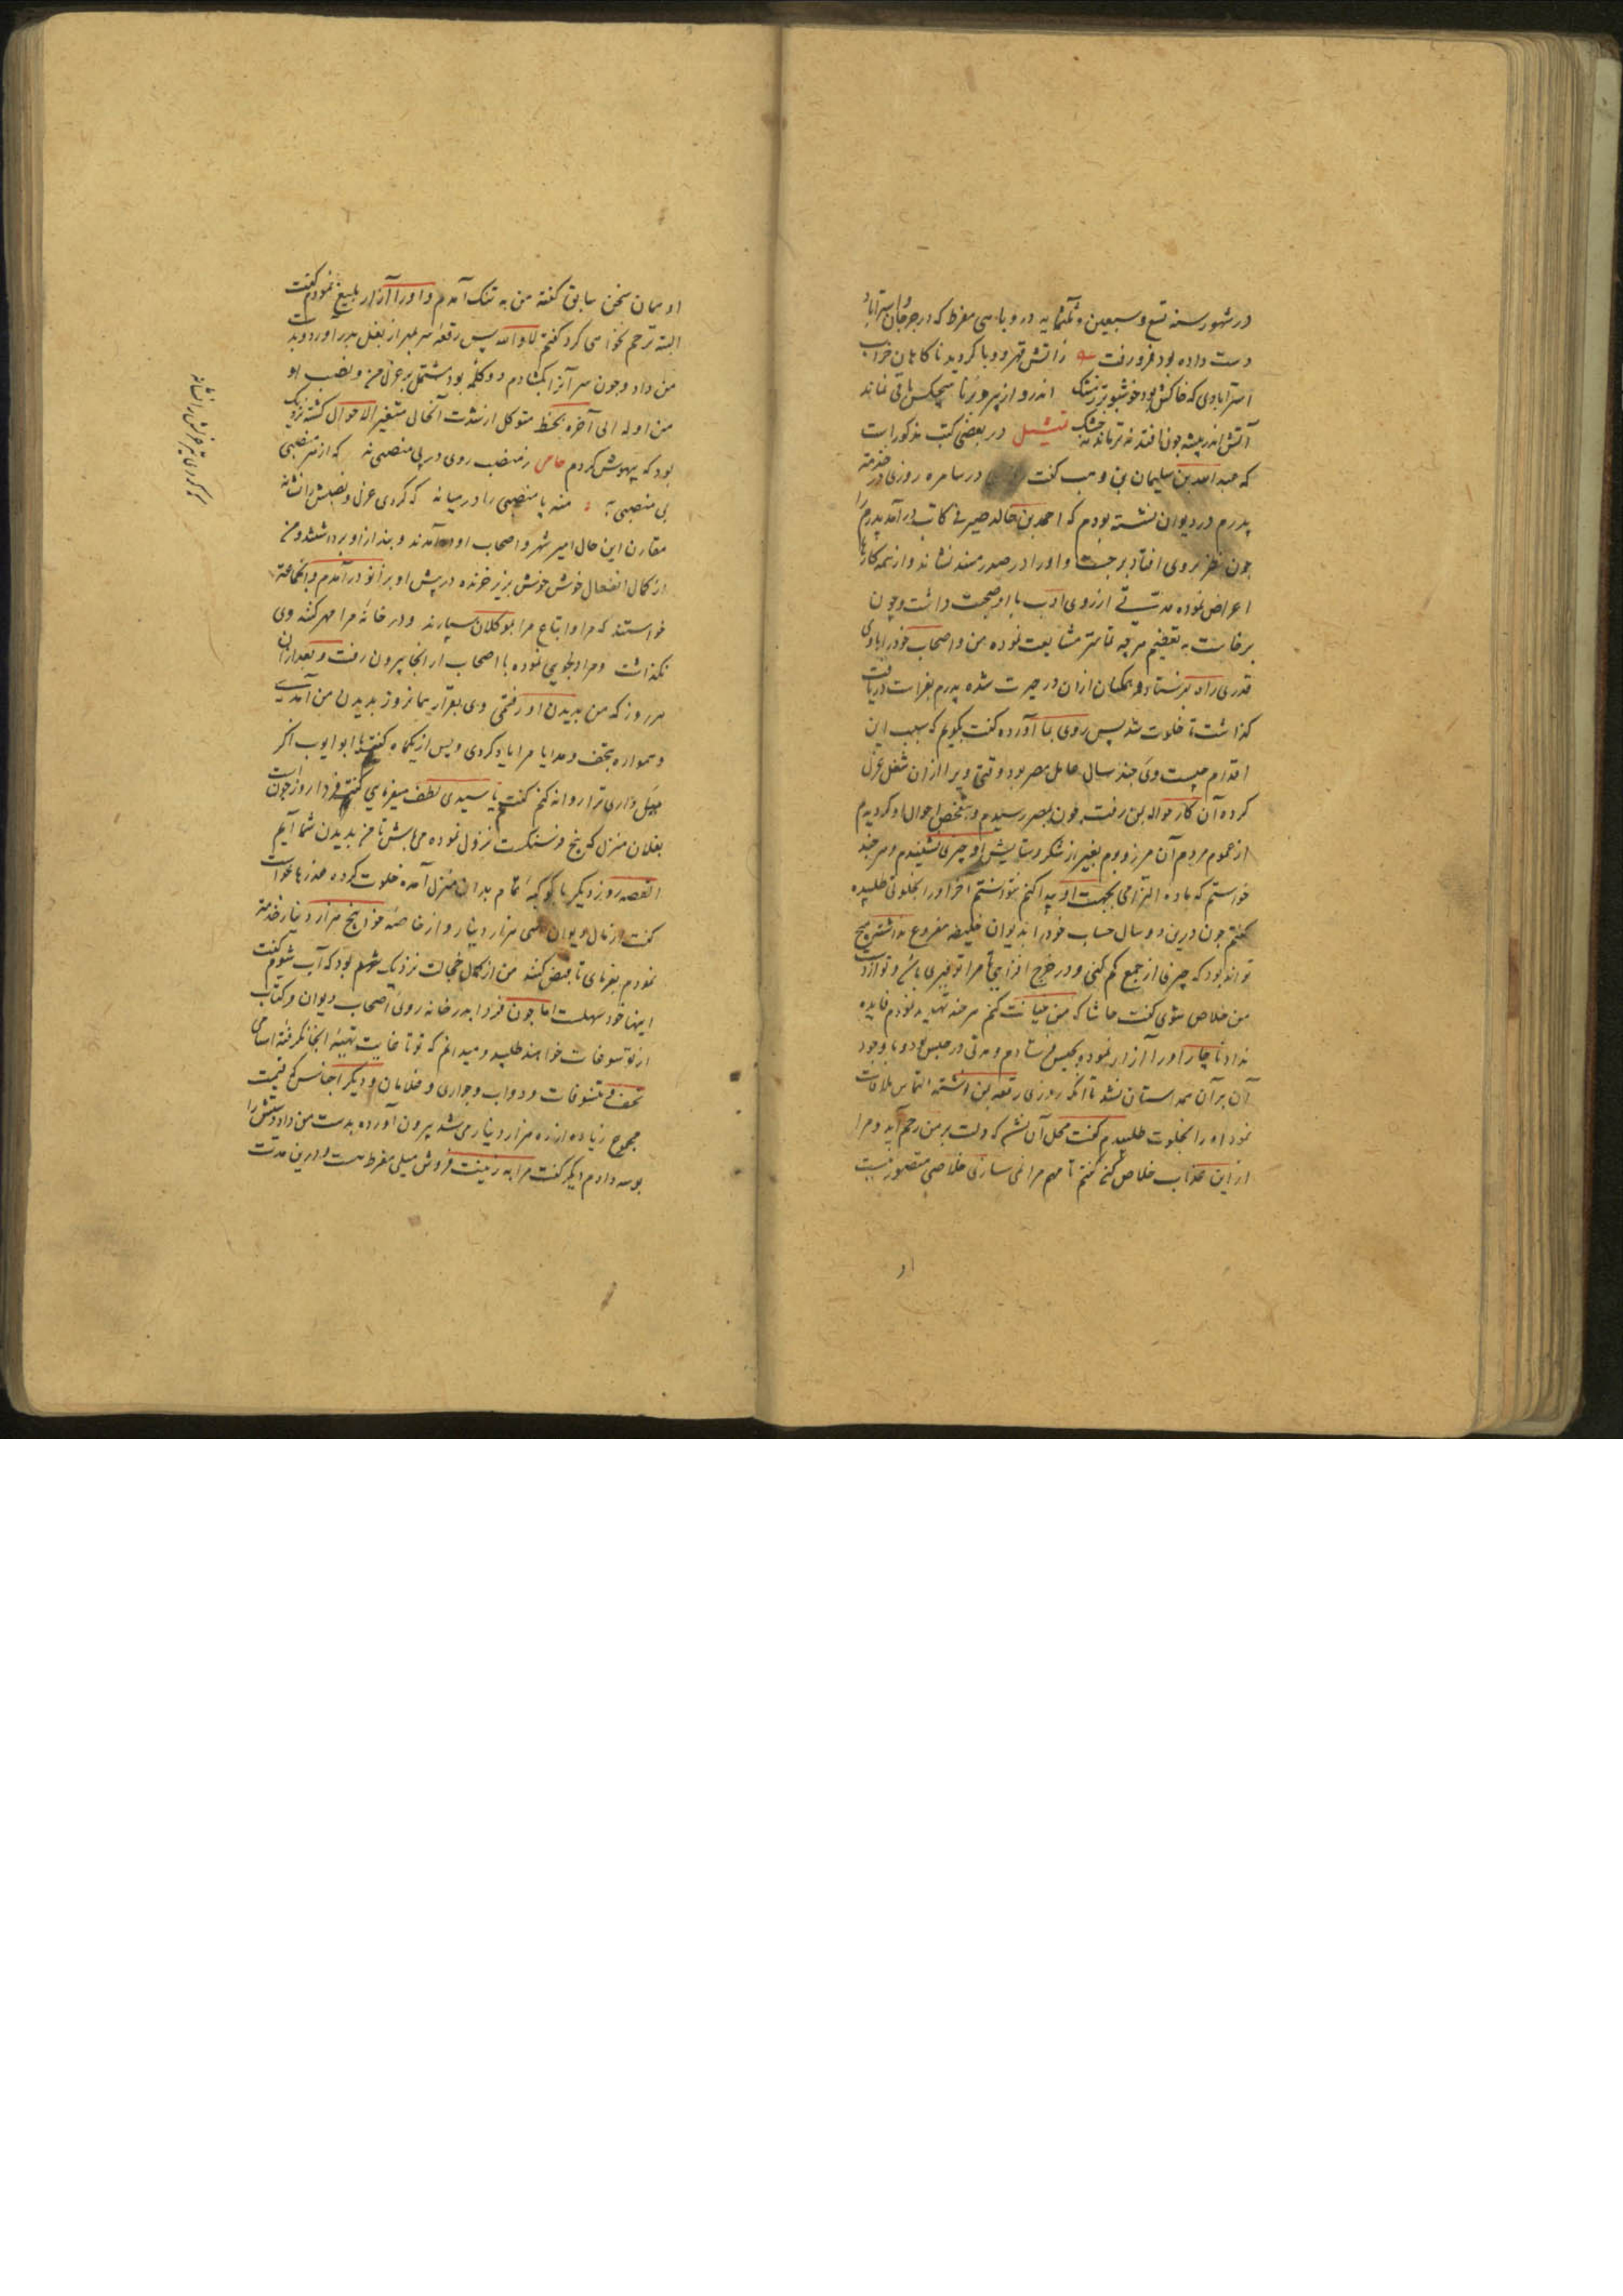 در شهور سنه تسع و سبعین و ثلثمایه در وبایی مفرط که در جرجان و استراباد
دست داده بود فرو رفت ز آتش قهر وبا گردید ناگاهان خراب
استرابادی که خاکش بود خوشبوتر ز مشک اندرو از پیر و برنا هیچکس باقی نماند
آتش اندر بیشه چون افتد نه تر ماند نه خشک تمثیل در بعضی کتب مذکور است
که عبد الله بن سلیمان بن وهب گفت در سامره روزی در خدمت
پدرم در دیوان نشسته بودم که احمد بن خالد صیرفی کاتب در آمد پدرم را
چون نظر بر وی افتاد برجست و او را در صدر مسند نشاند و از همه کارها
اعراض نموده مدتی از روی ادب با او صحبت داشت و چون
برخاست به تعظیم هر چه تمامتر مشایعت نموده من و اصحاب خود را با وی
قدری راه بفرستاد و همگنان ازان در حیرت شده پدرم بفراست دریافت
گذاشت تا خلوت شد پس روی بما آورده گفت بگویم که سبب این
اقدام چیست وی چند سال عامل مصر بود وقتی ویرا ازان شغل عزل
کرده آن کار حواله بمن رفت چون بمصر رسیدم و تفحص احوال او کردیم
از عموم مردم آن مرز و بوم بغیر از شکر و ستایش او چیزی نشنیدم و هر چند
خواستم که ماده التزامی بجهت او پیدا کنم نتوانستم آخر او را بخلوتی طلبیده
گفتم چون درین دو سال حساب خود را بدیوان خلیفه مفروغ نداشته هیچ
تواند بود که چیزی از جمع کم کنی و در خرج افزایی تا مرا توفیری باشد و تو از دست
من خلاص شوی گفت حاشا که من خیانت کنم هر چند تهدید نمودم فایده
نداد ناچار او را آزار نمود و بحبس فرستادم و مدتی در حبس بود و با وجود
آن بر آن همداستان نشد تا آنکه روزی رقعه بمن نوشته التماس ملاقات
نمود او را بخلوت طلبیدم گفت محل آن نشد که دلت بر من رحم آید و مرا
از این عذاب خلاص کنی گفتم تا مهم مرا نمی سازی خلاصی متصور نیست
او
او همان سخن سابق گفته من به تنگ آمدم و او را آزار بلیغ نمودم گفت
البته ترحم نخواهی کرد گفتم لا والله پس رقعه سر بمهر از بغل بدر آورد و بدست
من داد و چون سر آنرا بگشادم دو کلمه بود مشتمل بر عزل من و نصب او
من اوله الی آخره بخط متوکل از شدت آنحال متغیر الاحوال گشته نزدیک
بود که بیهوش گردم ز منصب روی در بی منصبی نه که از هر منصبی
بی منصبی به منه پا منصبی را در میانه که گردی عزل و نصبش را نشانه
مقارن این حال امیر شهر و اصحاب او در آمدند و بند از او برداشتند و من
از کمال انفعال خوش خوش بزیر خزنده در پیش او بزانو در آمدم و آنجماعت
خواستند که مرا و اتباع مرا بموکلان سپارند و در خانه مرا مهر کنند وی
نگذاشت و مرا دلجویی نموده با اصحاب از انجا بیرون رفت و بعد ازان
هر روز که من بدیدن او رفتمی وی بقرار همانروز بدیدن من آمدی
و همواره بتحف و هدایا مرا یاد کردی و پس از یکماه گفت یا ابو ایوب اگر
میل داری ترا روانه کنم گفتم یا سیدی لطف میفرمایی گفت فردا روز خوب است
بفلان منزل که پنج فرسنگست نزول نموده می باش تا من بدیدن شما آیم
القصه روز دیگر با کوکبه تمام بدان منزل آمده خلوت کرده عذرها خواست
گفت از مال دیوان سی هزار دینار و از خاصه خود پنج هزار دینار خدمت
نمودم بفرمای تا قبض کنند من از کمال خجالت نزدیک شرم بود که آب شوم گفت
اینها خود سهلست اما چون فردا بدر خانه روی اصحاب دیوان و کتاب
از تو سوغات خواهند طلبید و میدانم که تو تا غایت تهیه انجا نگرفته اسامی
تحف و تنسوقات و دواب و جواری و غلامان و دیگر اجناس که قیمت
مجموع زیاده از ده هزار دینار می شد بیرون آورده بدست من داد دستش را
بوسه دادم دیگر گفت مرا به زینت فروش میلی مفرط هست و درین مدت